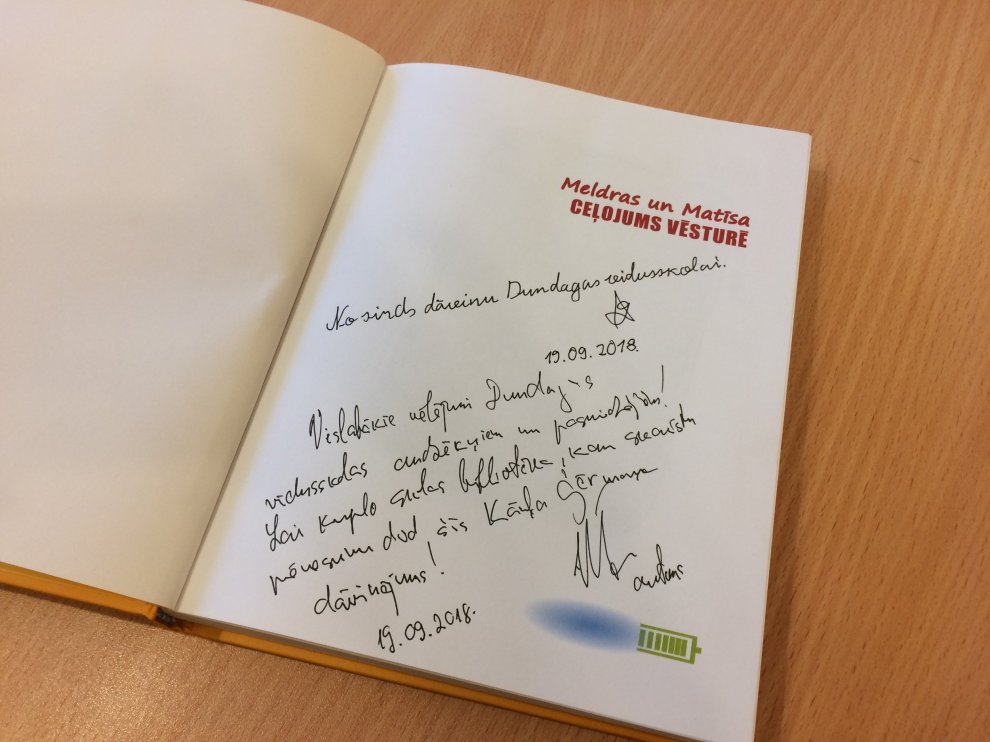 Meldras un Matīsa
CEĻOJUMS VĒSTURĒ
No sirds dāvinu Dundagas vidusskolai.
19.09.2018.
Vislabākie vēlējumi Dundagas
vidusskolas audzēkņiem un pasniedzējiem!
Lai kuplo skolas bibliotēka, kam
pārsumu dod šīs Kārļa Šērmaņa
dāvinājums!
autors
19.09.2018.